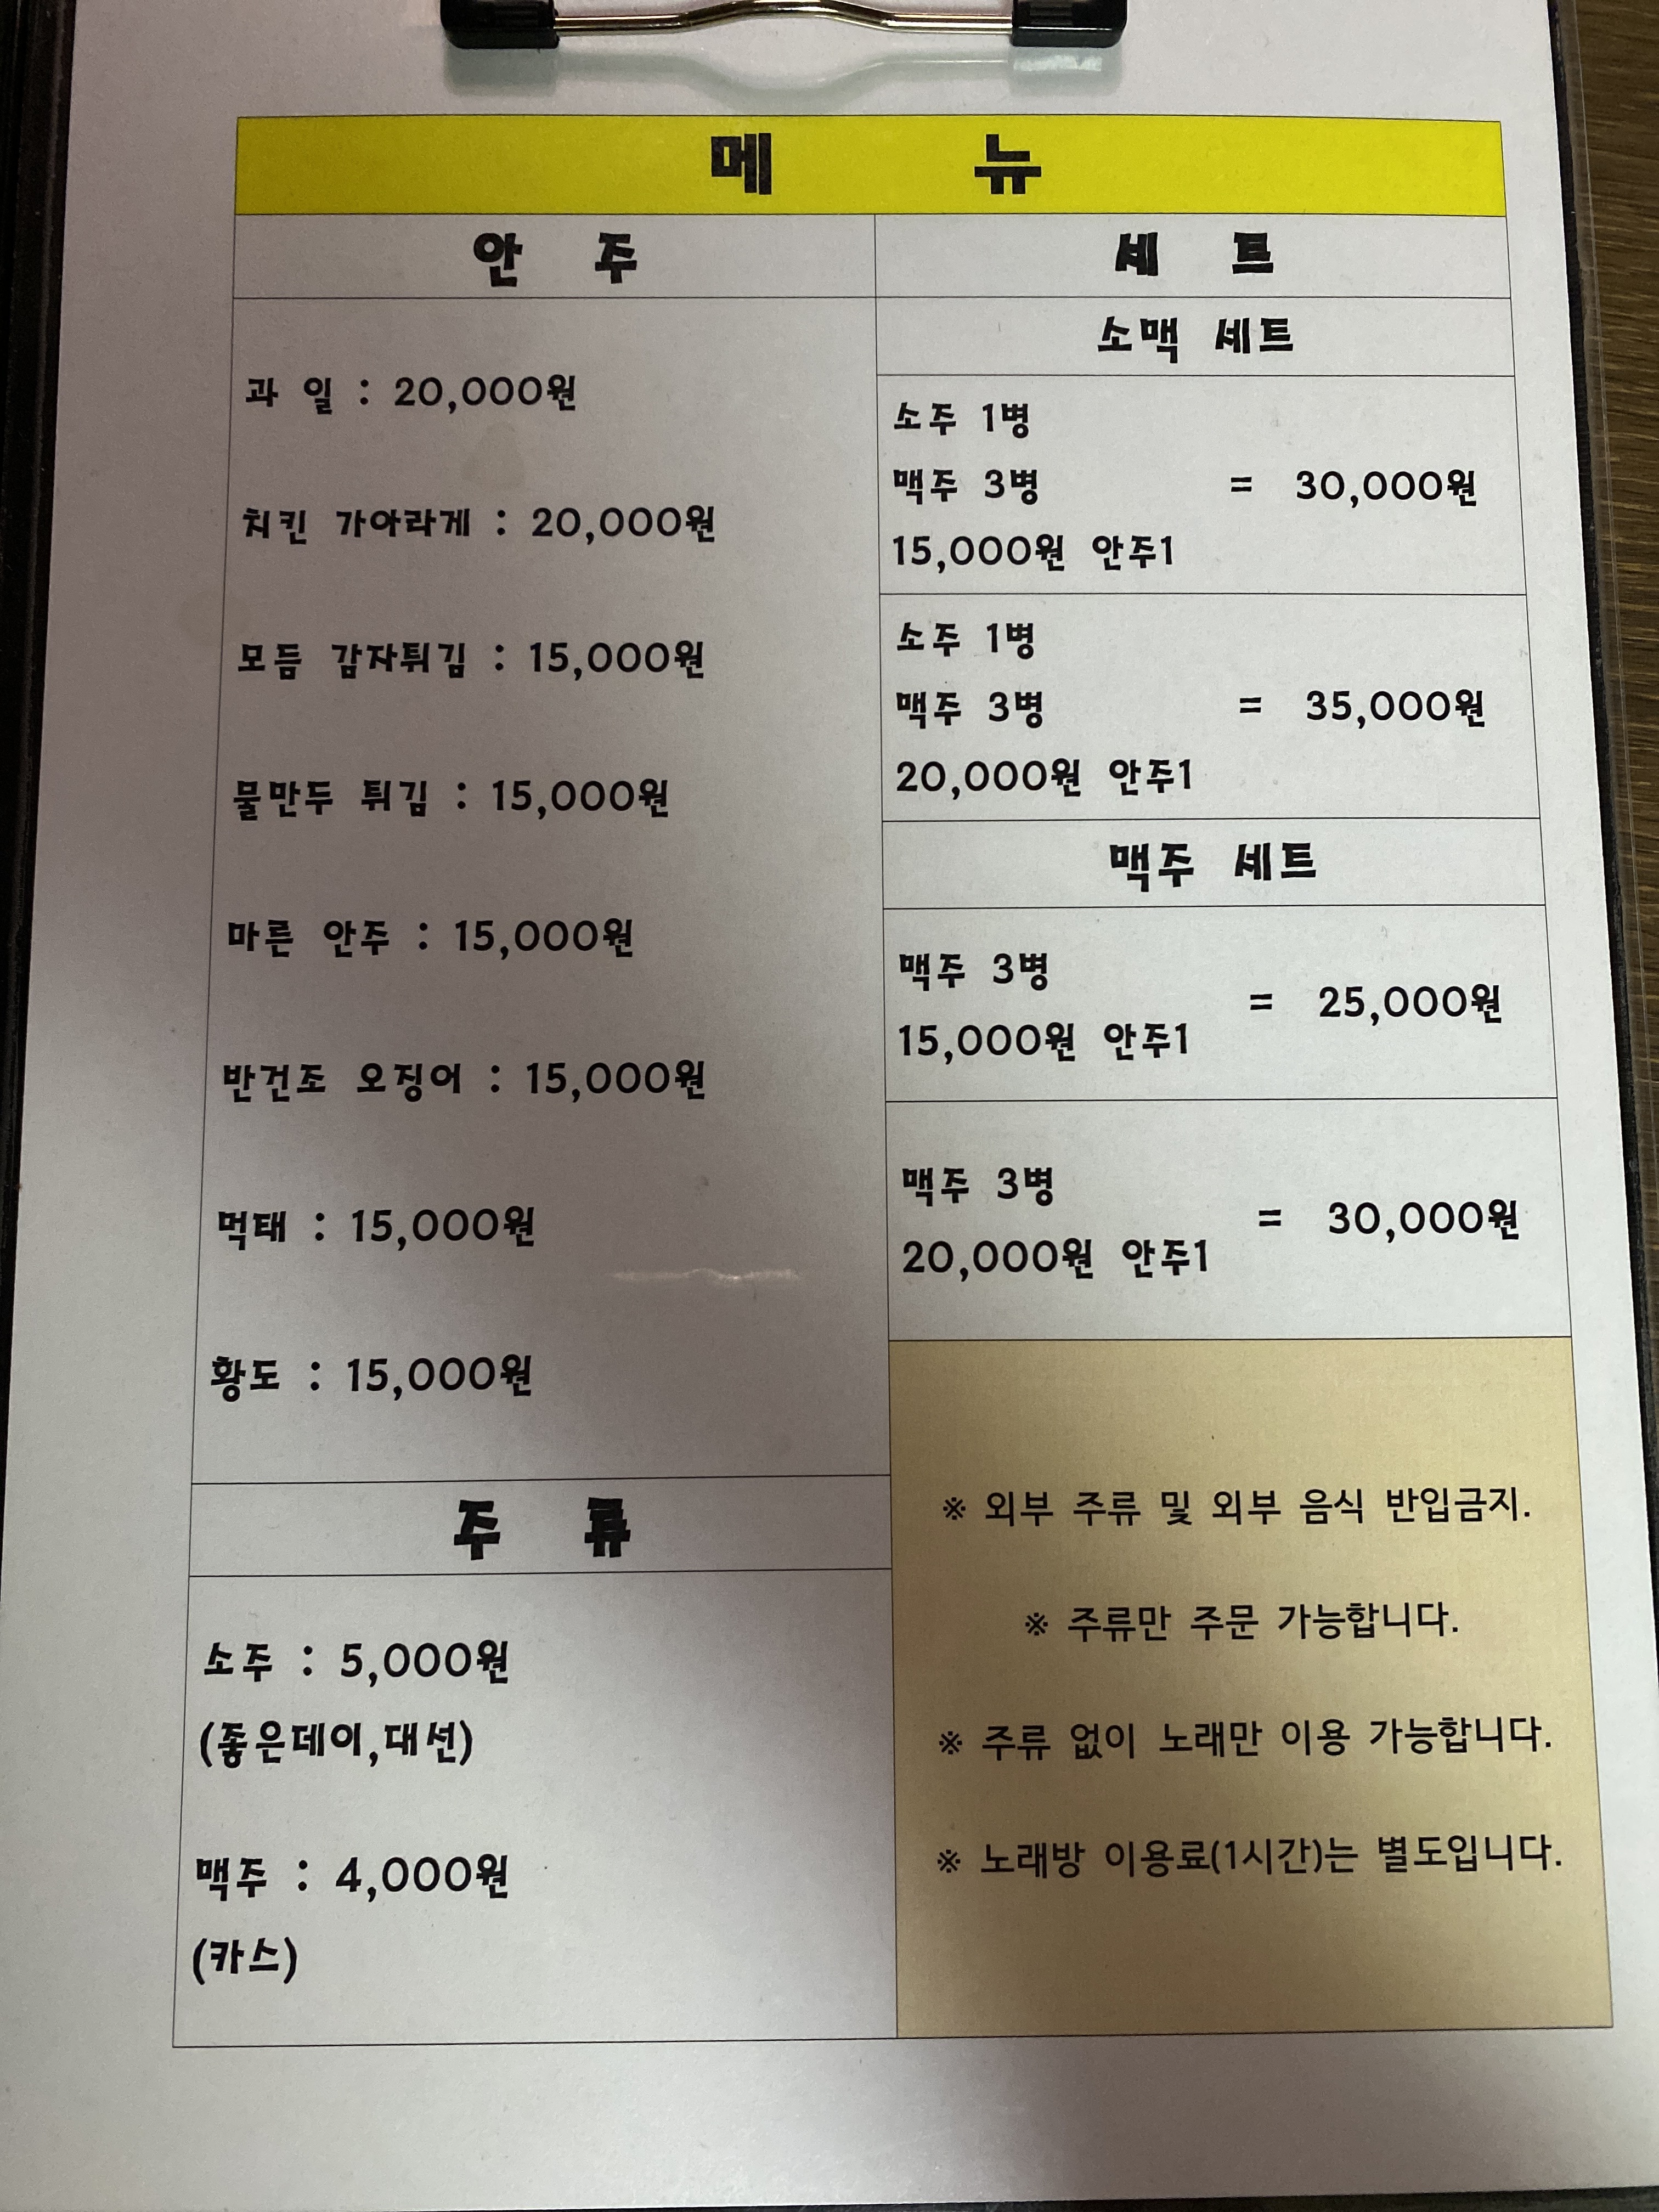 메 뉴
안 주
과 일 : 20,000원
치킨 가아라게 : 20,000원
모듬 감자튀김 : 15,000원
물만두 튀김 : 15,000원
마른 안주 : 15,000원
반건조 오징어 : 15,000원
먹태 : 15,000원
황도 : 15,000원
주 류
소주 : 5,000원
(좋은데이,대선)
맥주 : 4,000원
(카스)
세 트
소맥 세트
소주 1병
맥주 3병 = 30,000원
15,000원 안주1
소주 1병
맥주 3병 = 35,000원
20,000원 안주1
맥주 세트
맥주 3병
= 25,000원
15,000원 안주1
맥주 3병
= 30,000원
20,000원 안주1
※ 외부 주류 및 외부 음식 반입금지.
※ 주류만 주문 가능합니다.
※ 주류 없이 노래만 이용 가능합니다.
※ 노래방 이용료(1시간)는 별도입니다.